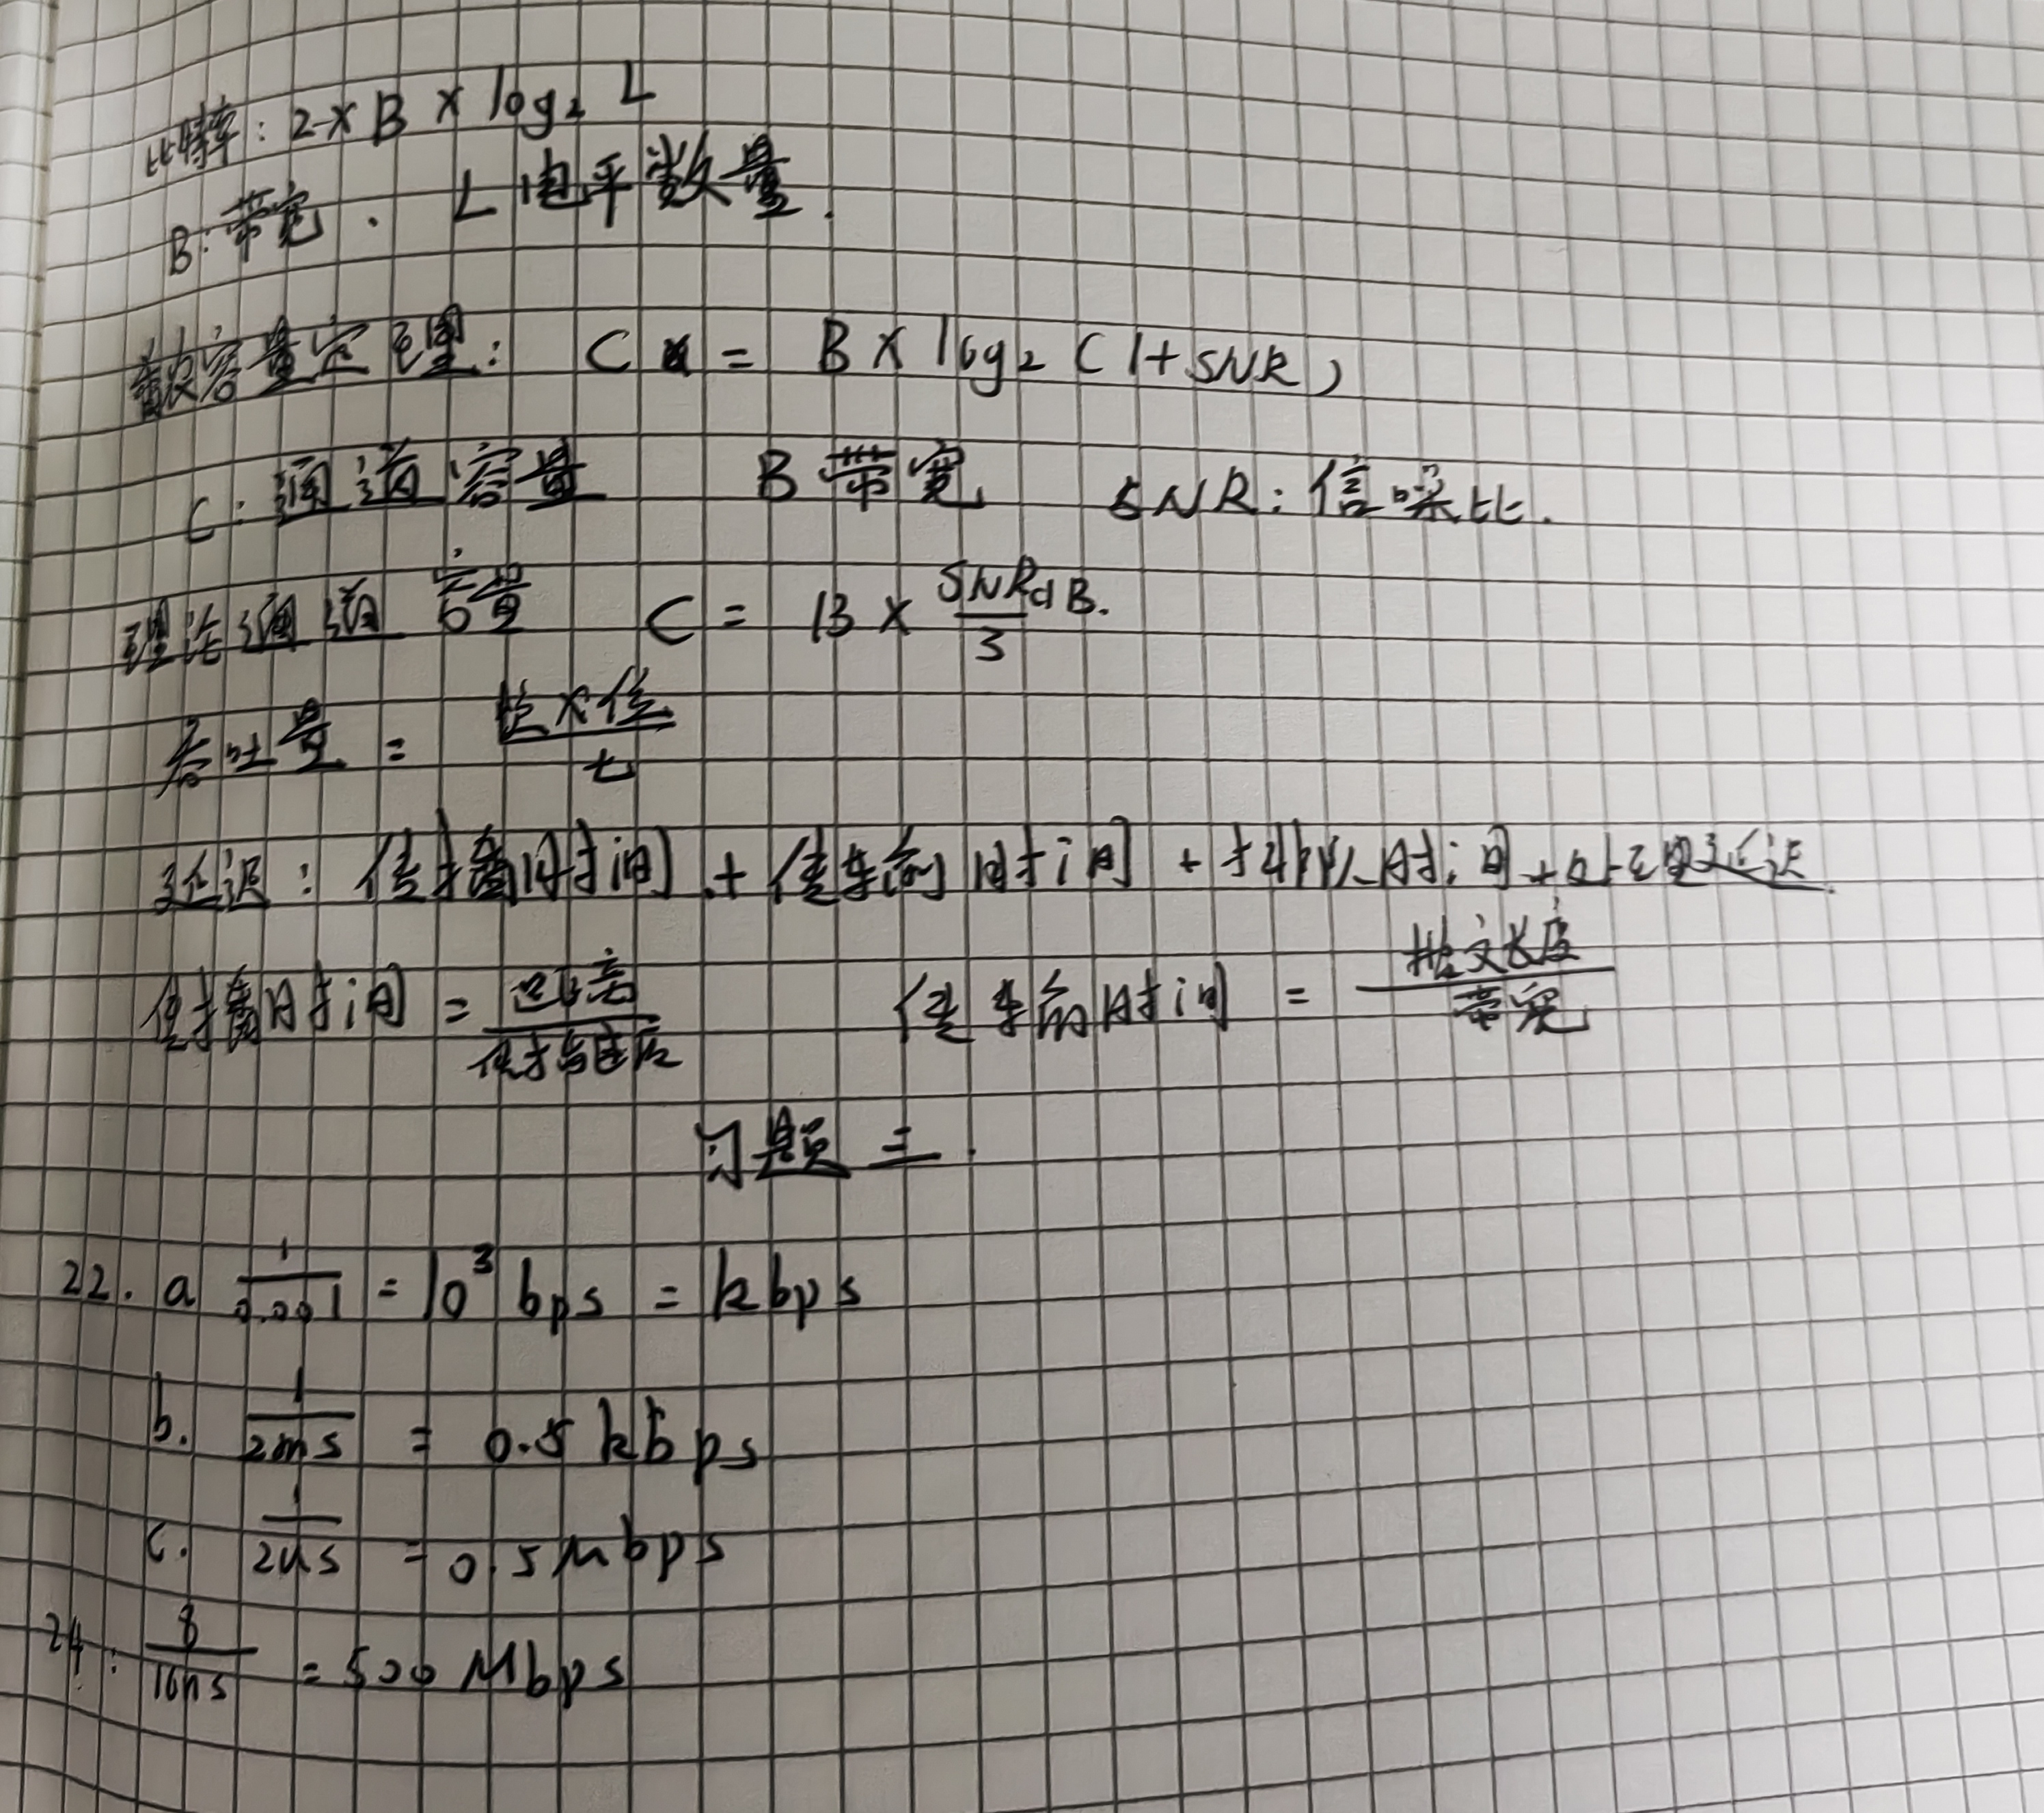 比特率: 2×B × log₂ L
B:带宽. L电平数量.
容量定理: C = B × log₂ (1+SNR)
C:通道容量 B带宽 SNR:信噪比.
理论通道容量 C = B × SNRdB/3
吞吐量 = /t
延迟: 传播时间 + 传输时间 + 排队时间 + 处理延迟.
传播时间 = 距离/传播速度 传输时间 = 报文长度/带宽
习题三.
22. a 1/0.001 = 10³ bps = kbps
b. 1/2ms = 0.5 kbps
c. 1/2us = 0.5 Mbps
24: 8/16ns = 500 Mbps